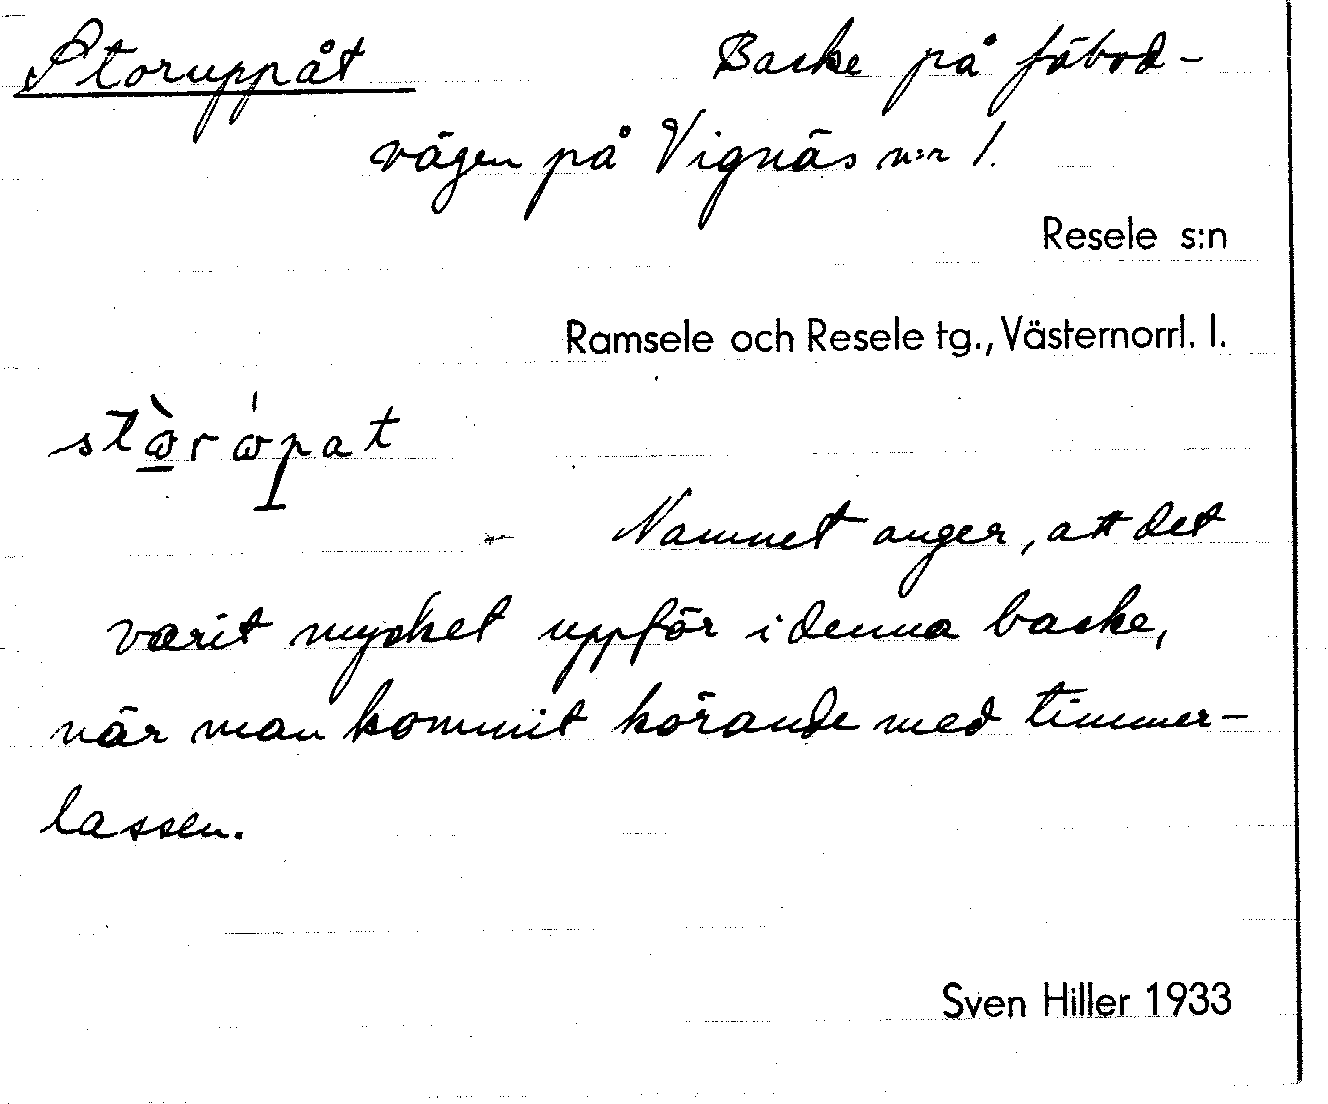 Storuppåt Backe på fäbod-
vägen på Vignäs n:r 1.
Resele s:n
Ramsele och Resele tg., Västernorrl. l.
Namnet anger, att det
varit mycket uppför i denna backe,
när man kommit körande med timmer-
lassen.
Sven Hiller 1933